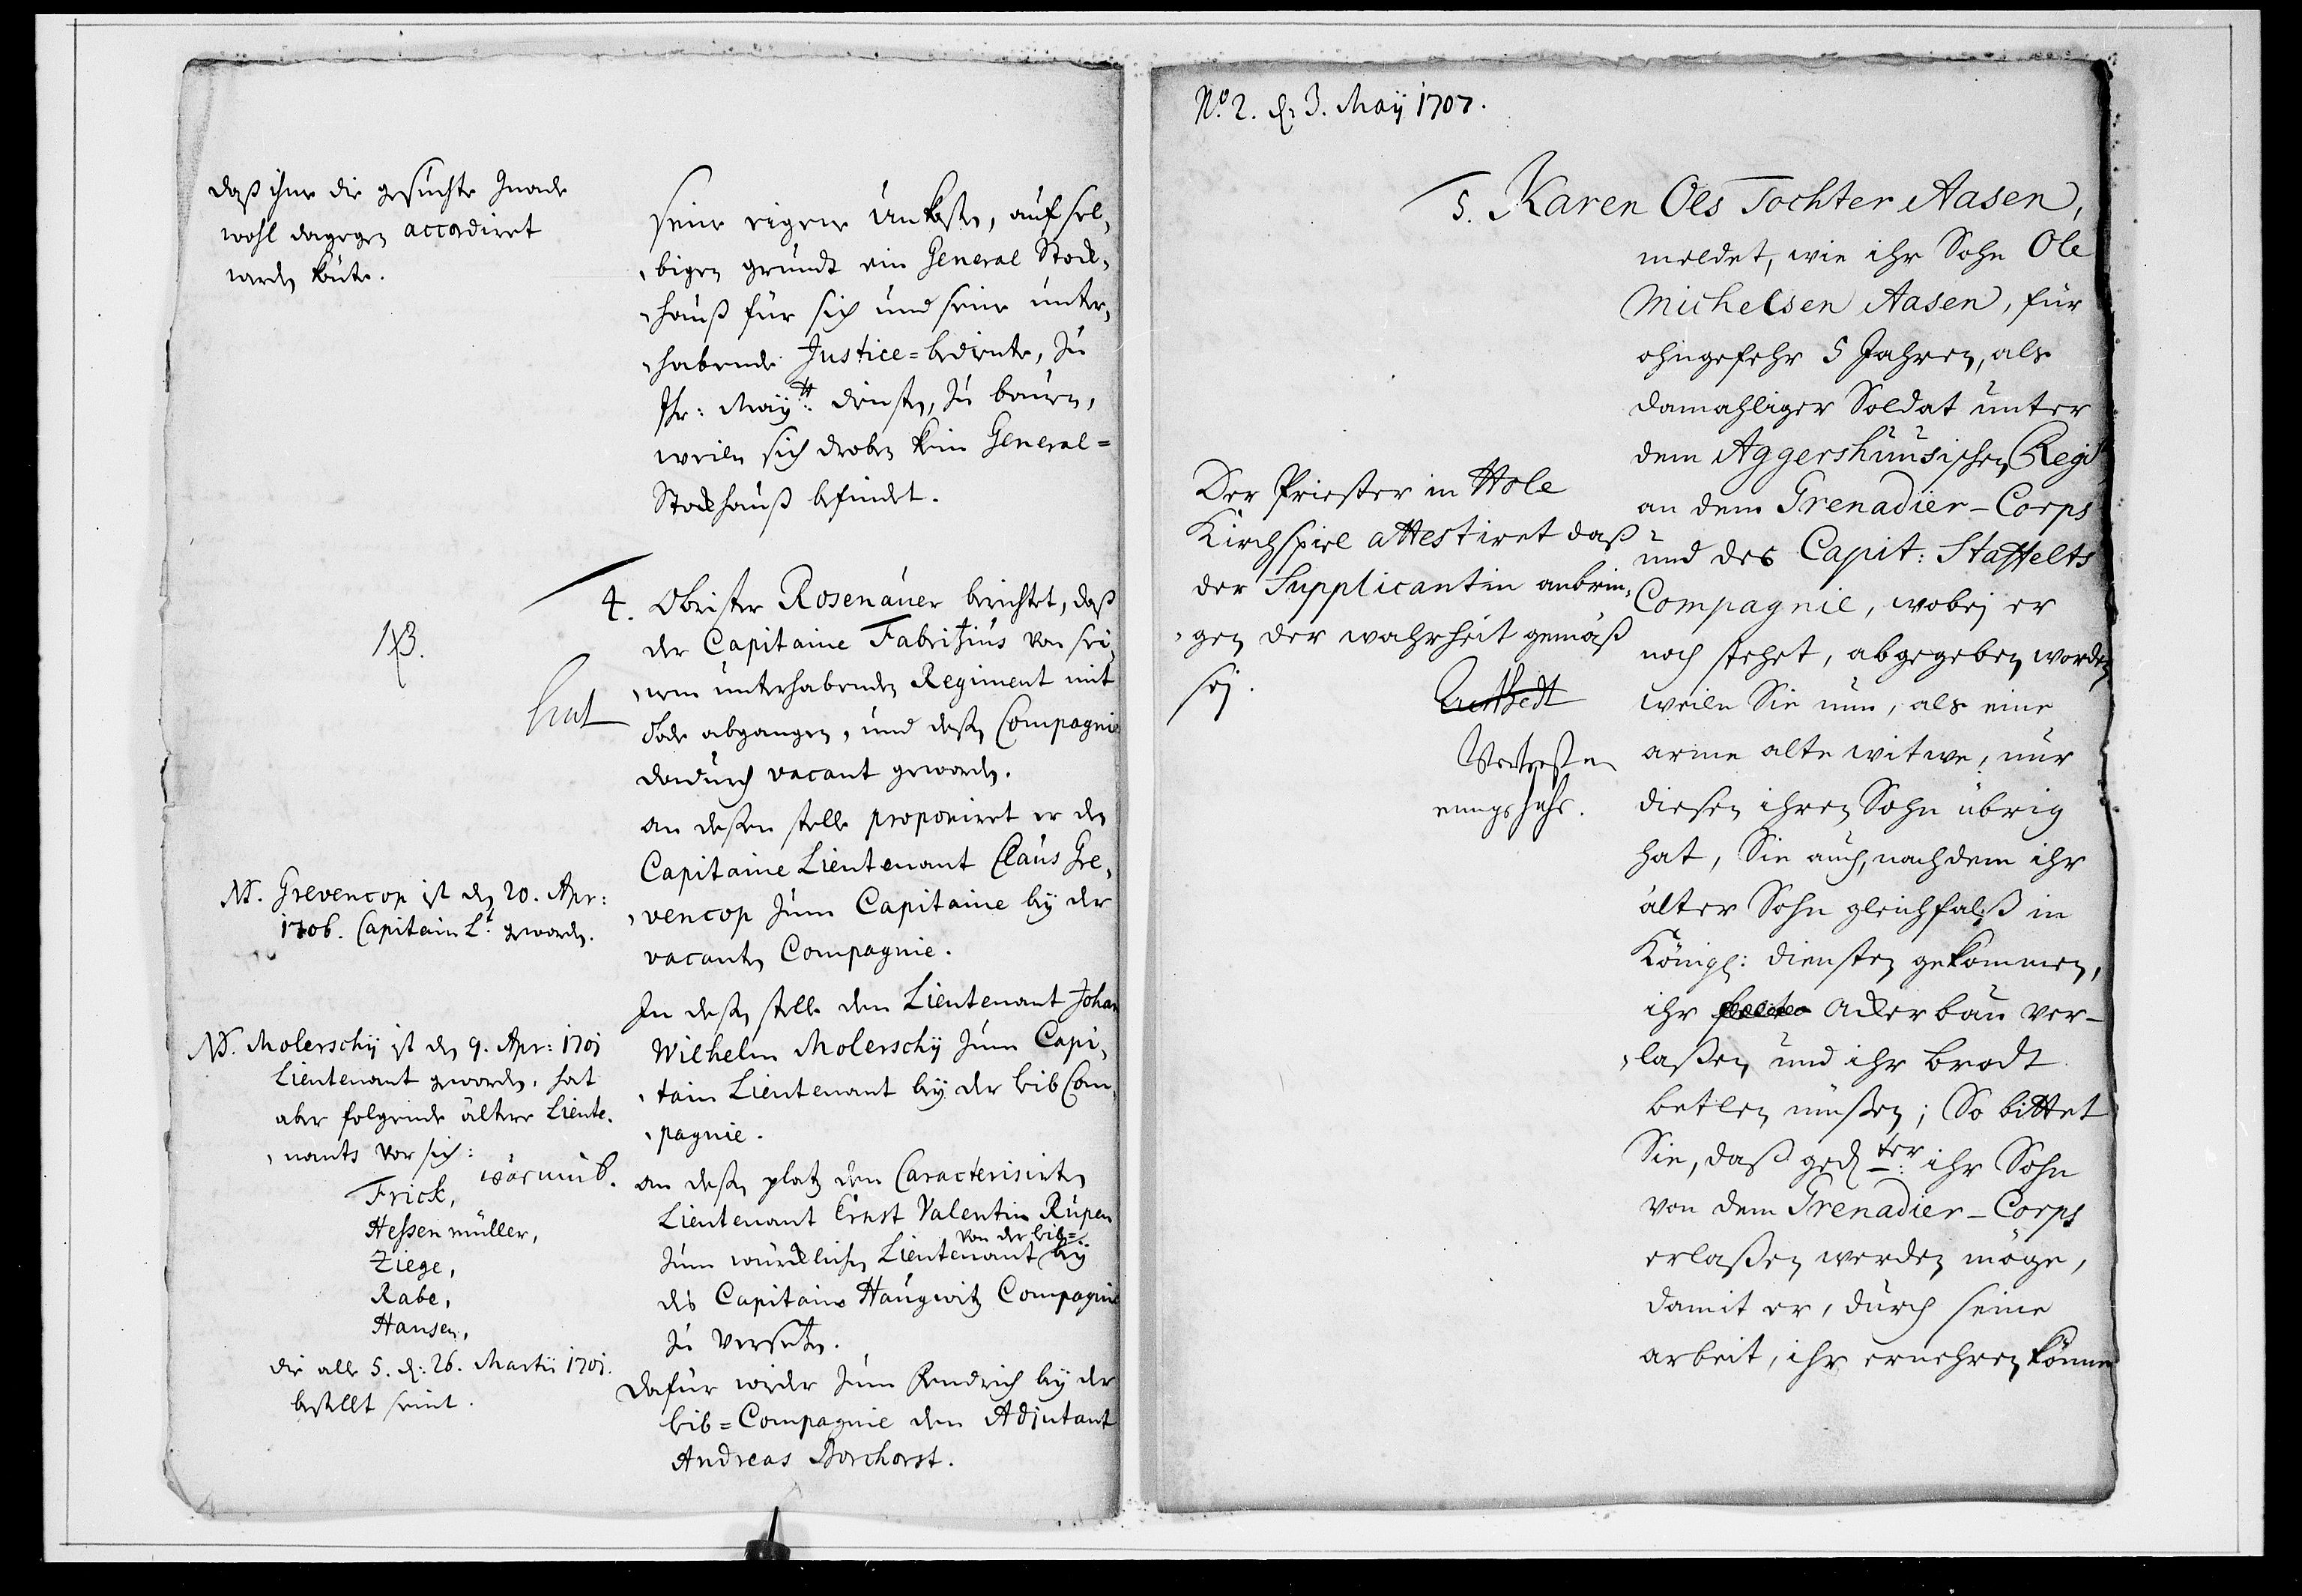 daß ihme die gesuchte Gnade
wohl dagegen accordiret
werden könte.
seine eigene Unkosten, auf sel„
„bigen grundt ein General Stock„
„hauß für sich und seine unter„
„habende Justice=bediente, zu
Ihr: Maÿtt: diensten, zu bauen,
weiln sich droben kein General=
Stockhauß befindet.
4. Obrister Rosenauer berichtet, daß
der Capitaine Fabritzius von sei„
„nem unterhabenden Regiment mit
Tode abgangen, und deßen Compagnie
dadurch vacant geworden.
an deßen stelle proponiret er den
Capitaine Lieutenant Claus Gre„
„vencop zum Capitaine beÿ der
vacanten Compagnie.
In deßen stelle den Lieutenant Johan
Wilhelm Molerschÿ zum Capi„
„tain Lieutenant beÿ der leib Com„
„pagnie.
an deßen platz den Caracterisirten
Lieutenant Ernst Valentin Rüpen
von der leib=
zum würcklichen Lieutenant beÿ
des Capitains Haugwitz Compagnie
zu versetzen.
dafür wieder zum Fendrich beÿ der
leib=Compagnie den Adjutant
Andreas Borchorst.
NB. Grevencop ist den 20. Apr:
1706. Capitain Lt. geworden.
NB. Molerschÿ ist den 9. Apr: 1701
Lieutenant geworden, hat
aber folgende ältere Lieute„
„nants vor sich:
Frick,
Heßenmüller,
Ziege,
Rabe,
Hansen,
die alle 5. d: 26. Martii 1701.
bestellt seint.
No. 2. d. 3. Maÿ 1707.
5. Karen Oles Tochter Aasen,
meldet, wie ihr Sohn Ole
Michelsen Aasen, für
ohngefehr 5 Jahren, als
damahliger Soldat unter
dem Aggershuusischen Regt
an dem Grenadier-Corps
und des Capit: Staffelts
Compagnie, wobeÿ er
noch stehet, abgegeben worden
weiln Sie nun, als eine
arme alte witwe, nur
diesen ihren Sohn übrig
hat, Sie auch, nachdem ihr
älter Sohn gleichfalß in
Königl: diensten gekommen,
ihr Ackerbau ver-
„laßen und ihr brodt
betlen müßen; So bittet
Sie, daß gedter: ihr Sohn
von dem Grenadier-Corps
erlaßen werden möge,
damit er, durch seine
arbeit, ihr ernehren könne
Der Priester in Hole
Kirchspiel attestiret daß
der Supplicantin anbrin„
„gen der wahrheit gemäß
seÿ.